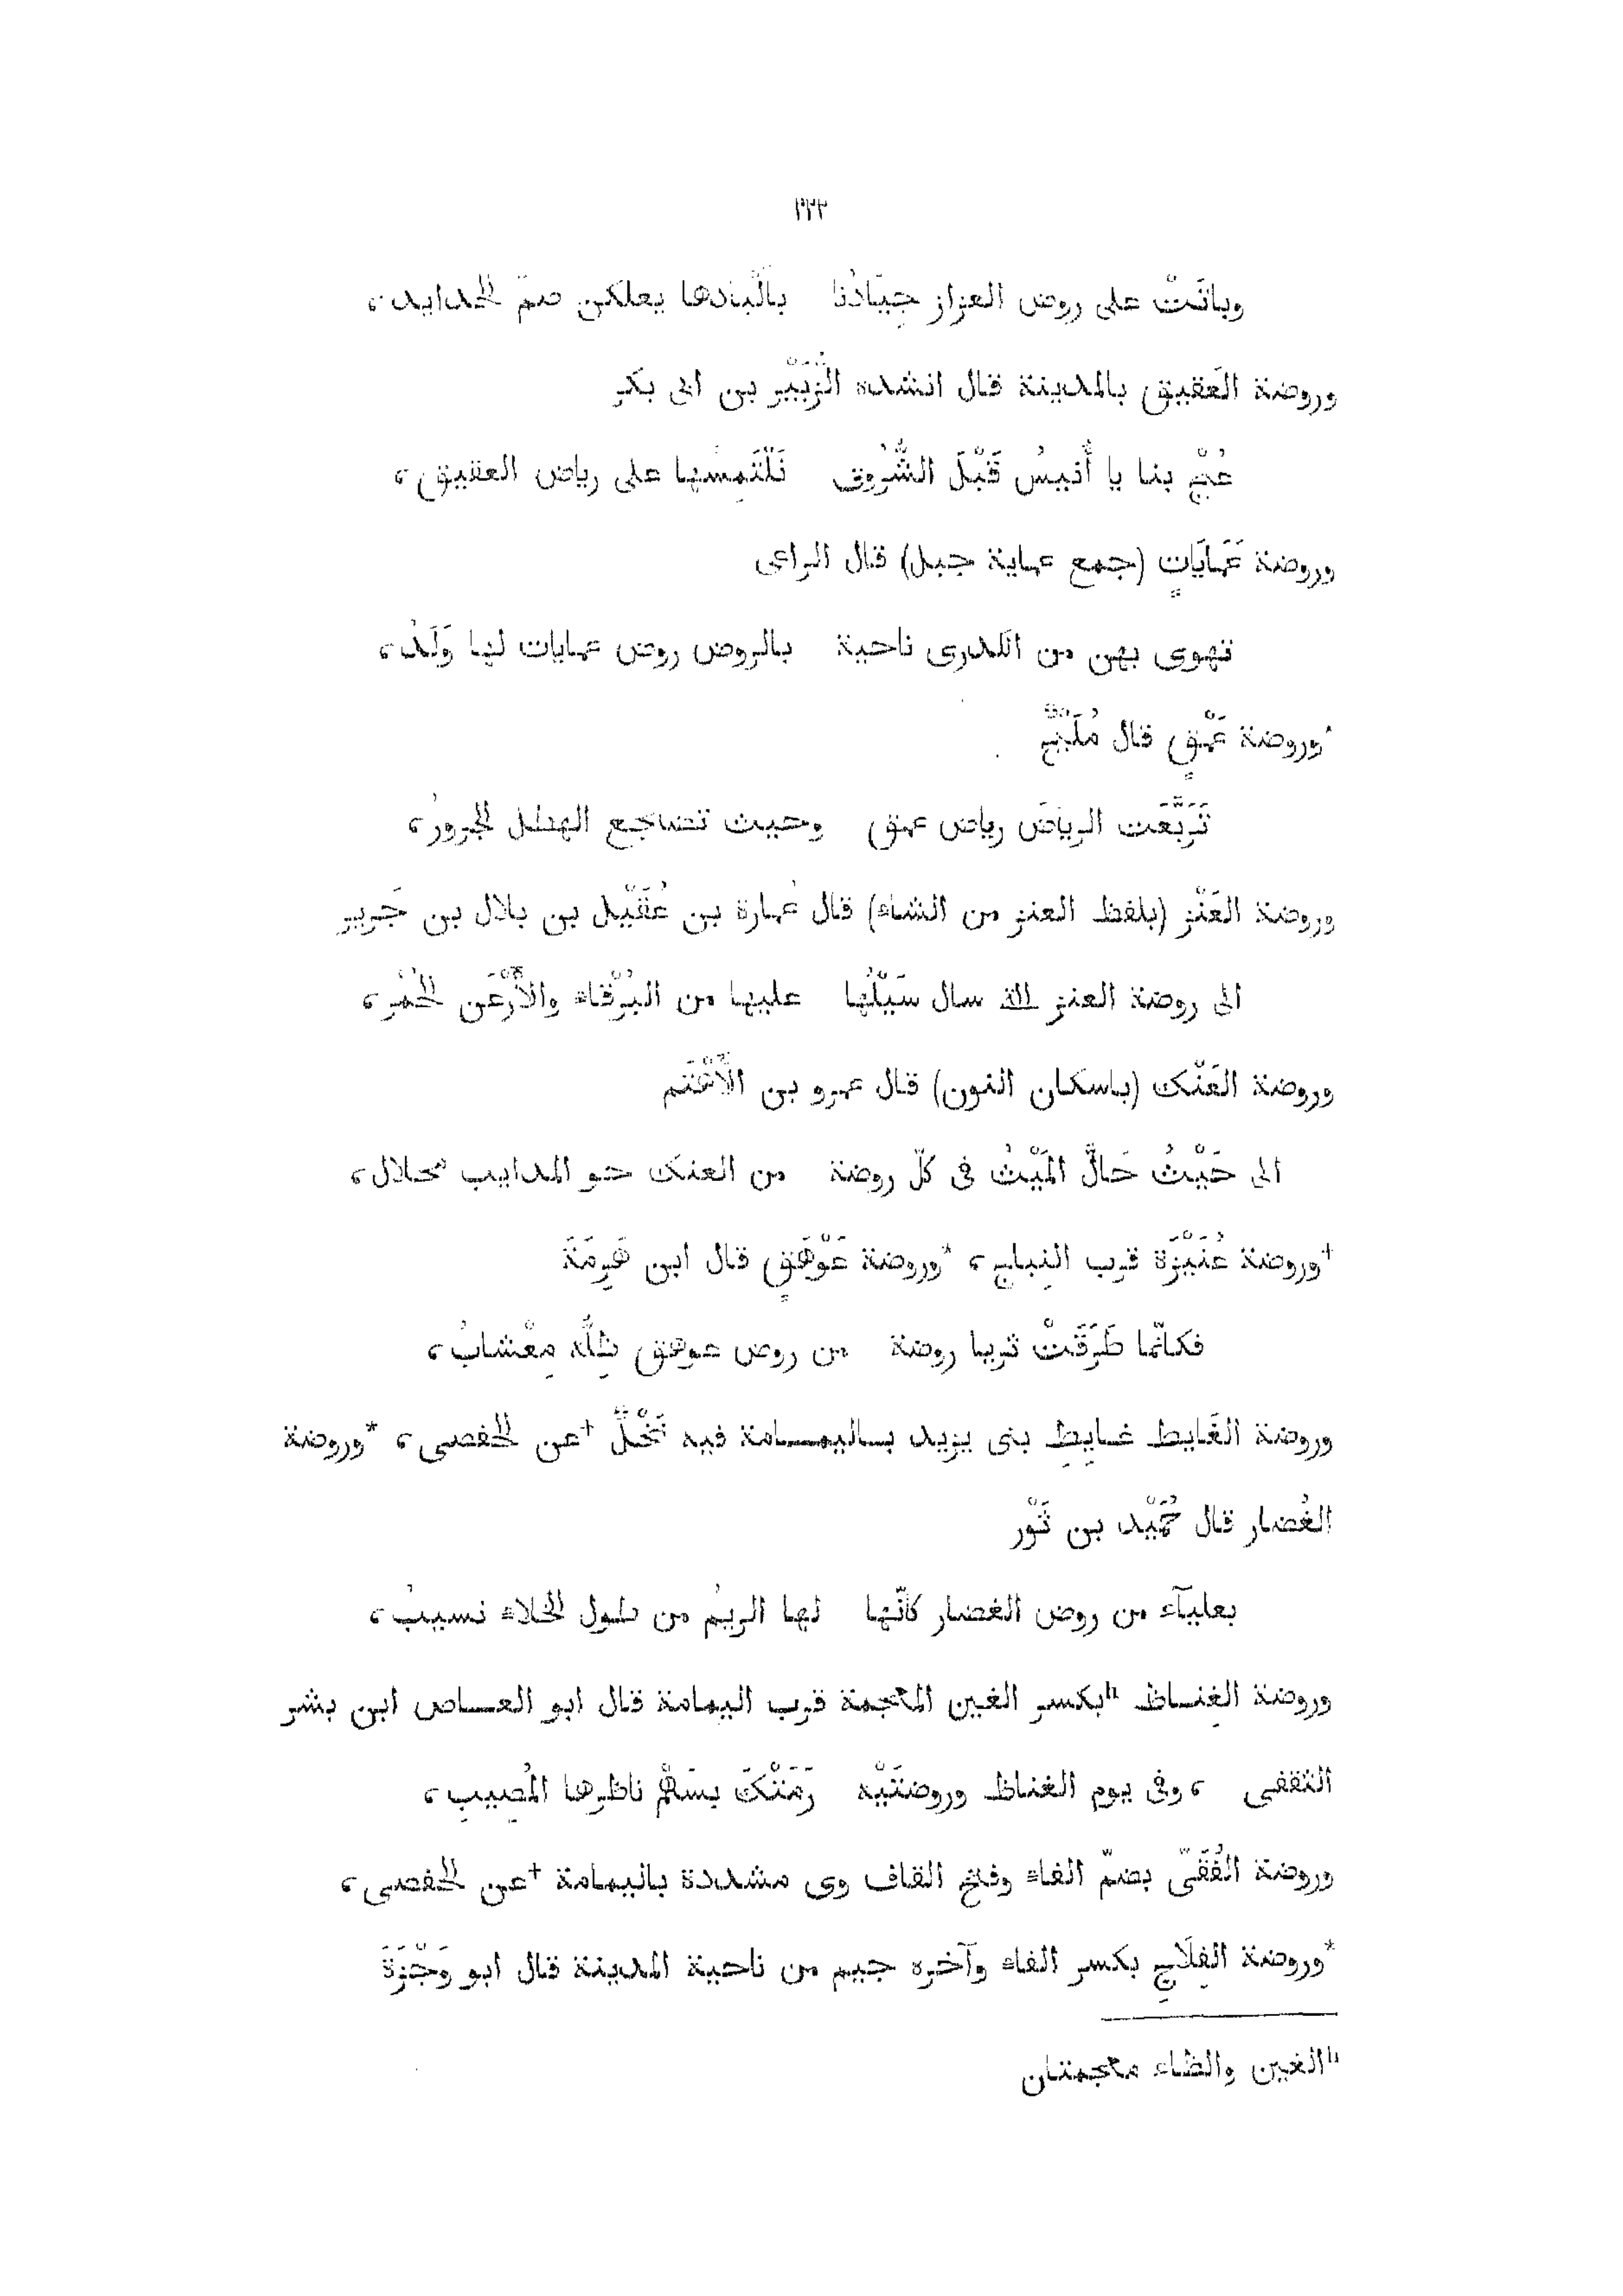 ٢٢٢
وباتَتْ على روض العزاز جِيَادُنا بأَلْبادها يعلكن صمّ الحدايد،
وروضة العَقيق بالمدينة قال انشده الزُبَيْر بن ابى بكر
عُجْ بنا يا أُنيسُ قَبْلَ الشُّرُوق نَلْتَمِسْها على رياض العقيق،
وروضة عَمَايَاتٍ (جمع عماية جبل) قال الراعى
تهوى بهن من الكدرى ناحية بالروض روض عمايات لها وَلَدُ،
*وروضة عَمْقٍ قال مُلَيْحٌ
تَرَبَّعَت الرياضَ رياض عمق وحيث تضاجع الهطل الجرورُ،
وروضة العَنْز (بلفظ العنز من الشاء) قال عُمارة بن عُقَيْل بن بلال بن جَرير
الى روضة العنز الله سال سَيْلُها عليها من البُرْقاء والأَرْعَن الحُمْر،
وروضة العَنْك (باسكان النون) قال عمرو بن الأَهْتَم
الى حَيْثُ حَالَّ المَيْثُ فى كلّ روضة من العنك حو المدايب محلال،
+وروضة عُنَيْزَة قرب النِباج، *وروضة عَوْهَقٍ قال ابن هَرِمَةَ
فكانّما طَرَقَتْ بريا روضة من روض عوهق طِلَّه مِعْشابُ،
وروضة الغَايط غايِطِ بنى يزيد باليمامة فيه نَخْلٌ +عن الحفصى، *وروضة
الغُضار قال حُمَيْد بن ثَوْر
بعليآء من روض الغضار كانّها لها الريمُ من طول الخلاء نسيبُ،
وروضة الغِناظ "بكسر الغين المعجمة قرب اليمامة قال ابو العاص ابن بشر
الثقفى ، وفى يوم الغناظ وروضتَيْه رَمَتْكَ بسَهْمِ ناظرها المُصِيبِ،
وروضة الفُقَىّ بضمّ الفاء وفتح القاف وى مشددة باليمامة +عن الحفصى،
*وروضة الفِلَاجِ بكسر الفاء وآخره جيم من ناحية المدينة قال ابو وَجْزَةَ
"الغين والظاء معجمتان